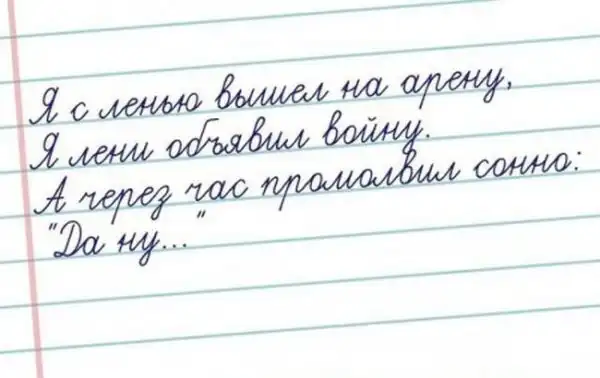 Я с ленью вышел на арену,
Я лени объявил войну.
А через час промолвил сонно:
"Да ну..."